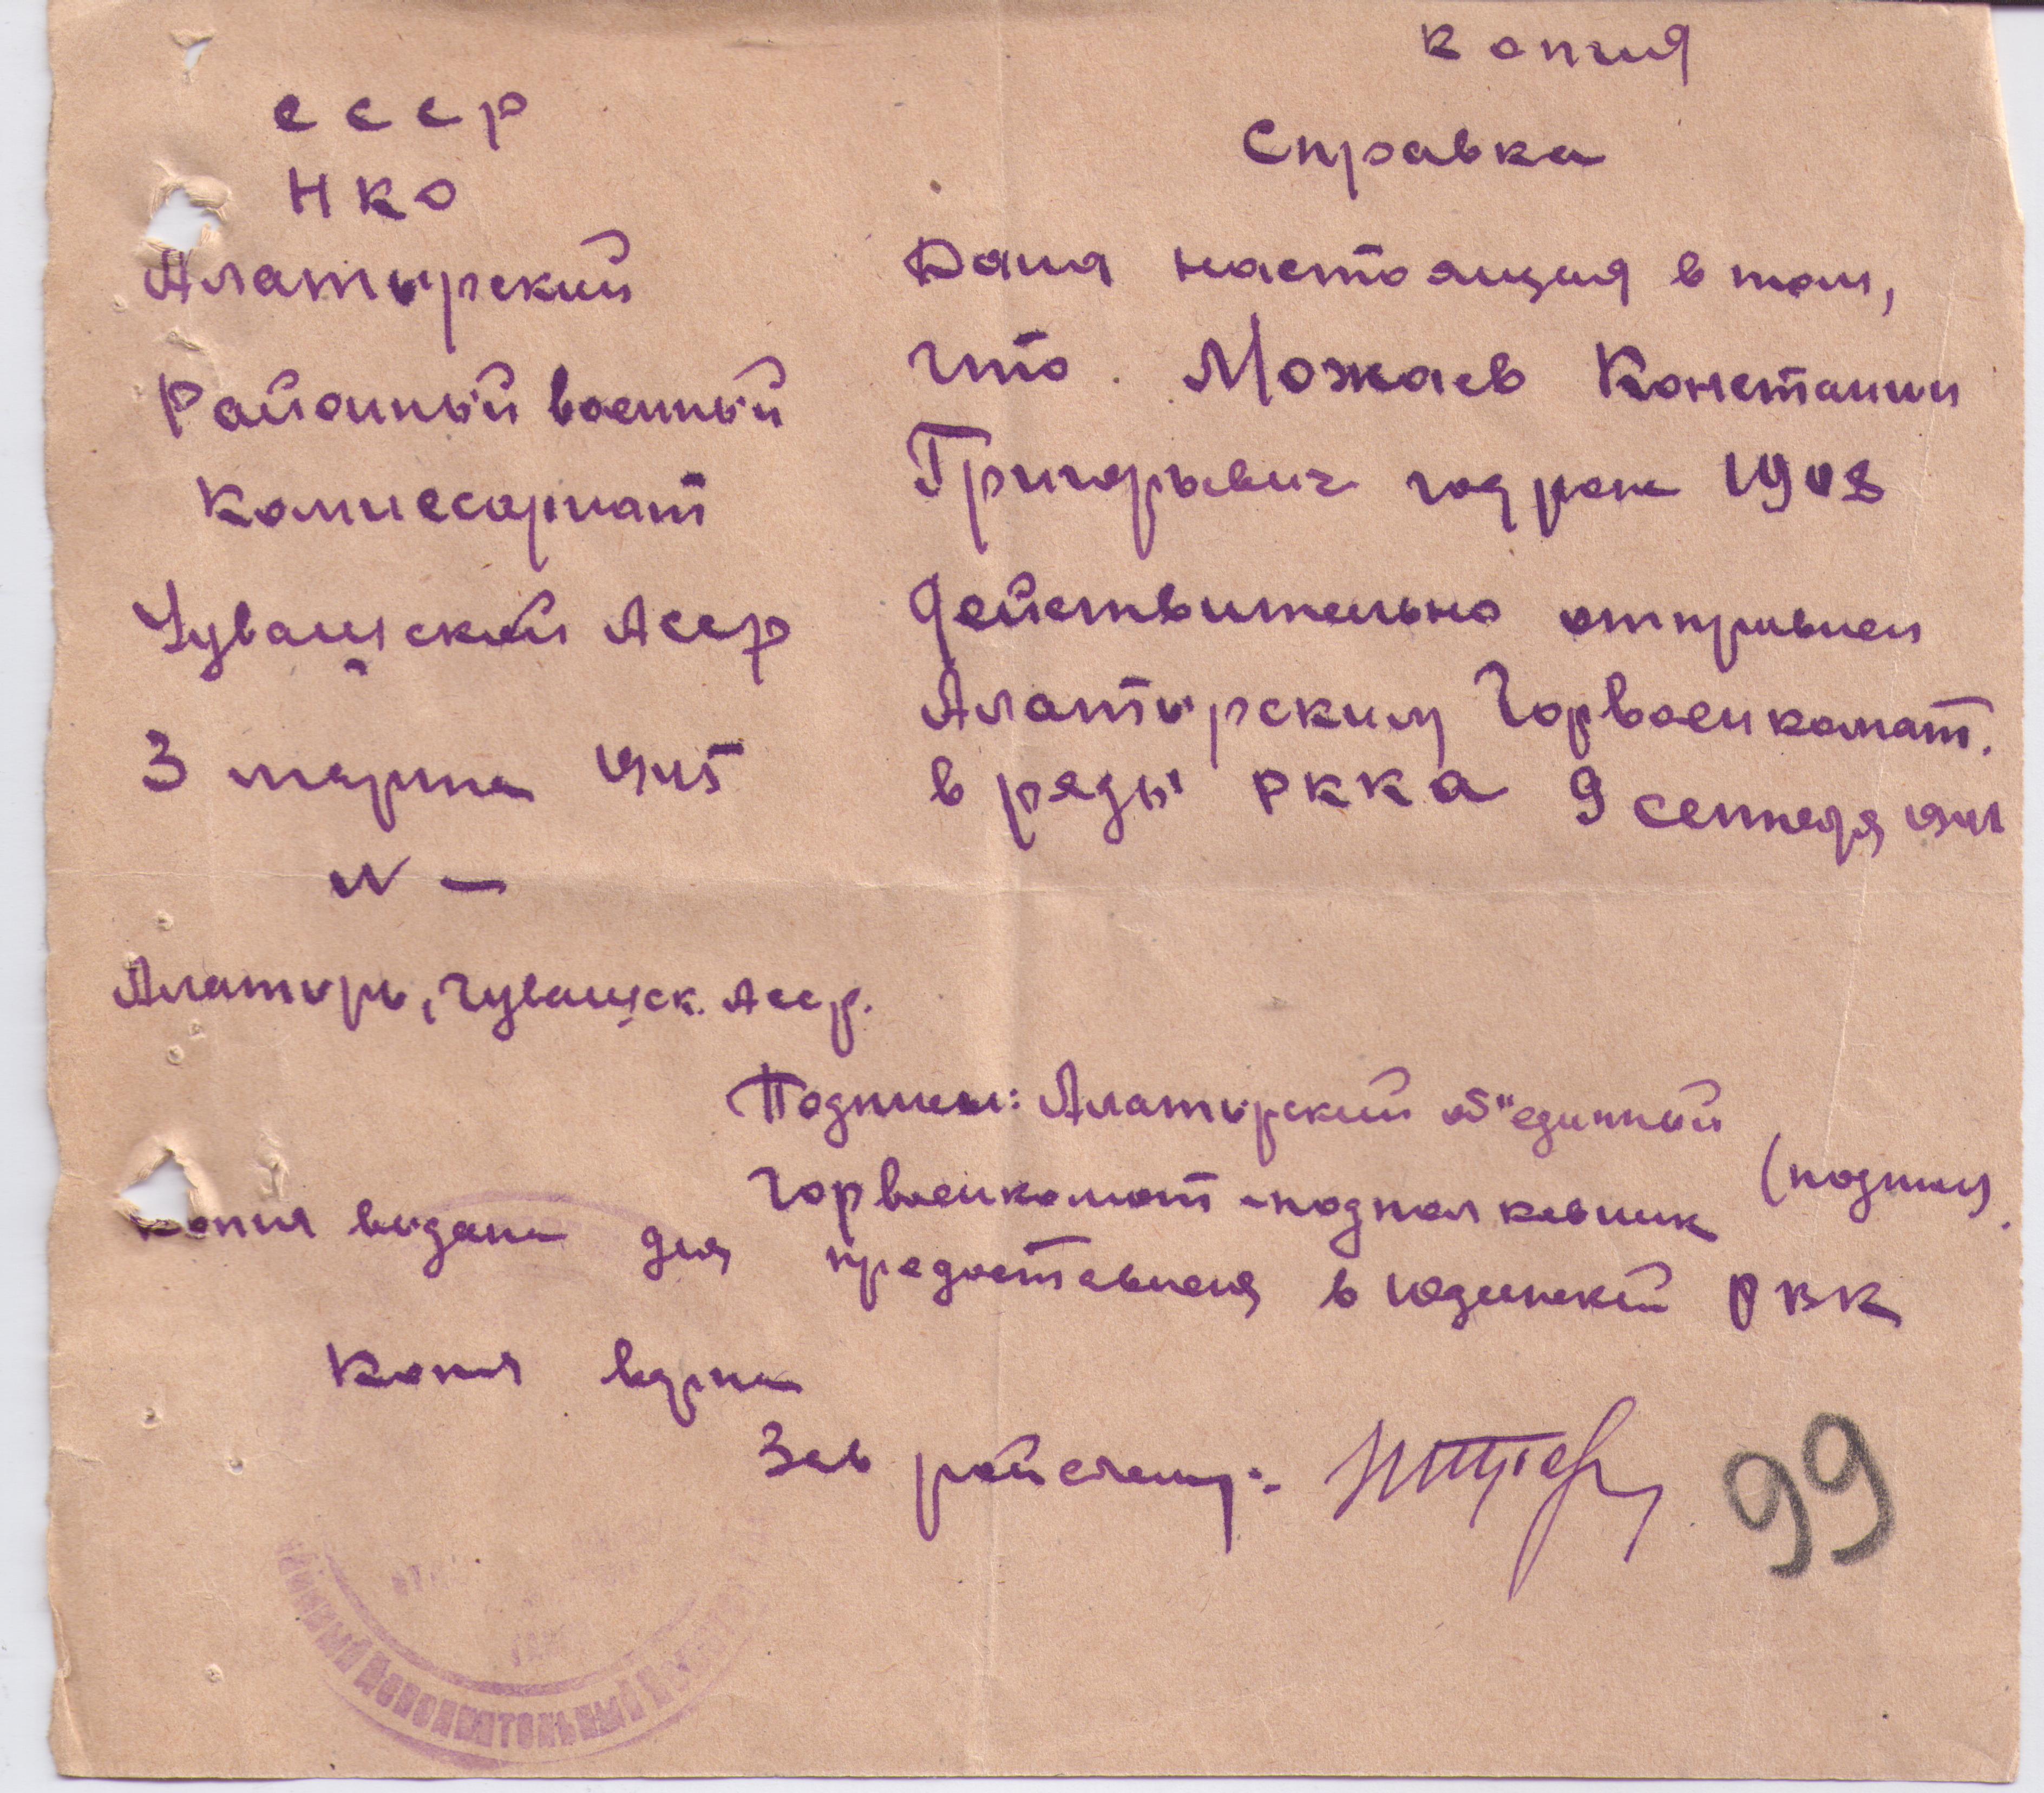 копия
СССР
НКО
Алатырский
Районный военный
Комиссариат
Чувашской АССР
3 марта 1945
N —
Алатырь, Чувашск. АССР.
Справка
Дана настоящия в том,
что Можаев Констанин
Григорьевич год рож 1908
действительно отправлен
Алатырским Горвоенкомат.
в ряды РККА 9 сентября 1941
Подписи: Алатырский об"единный
Горвоенкомат - подполковник (подпись).
Копия выдана для предоставления в Юдинский РВК
Копия верна
Зав
99